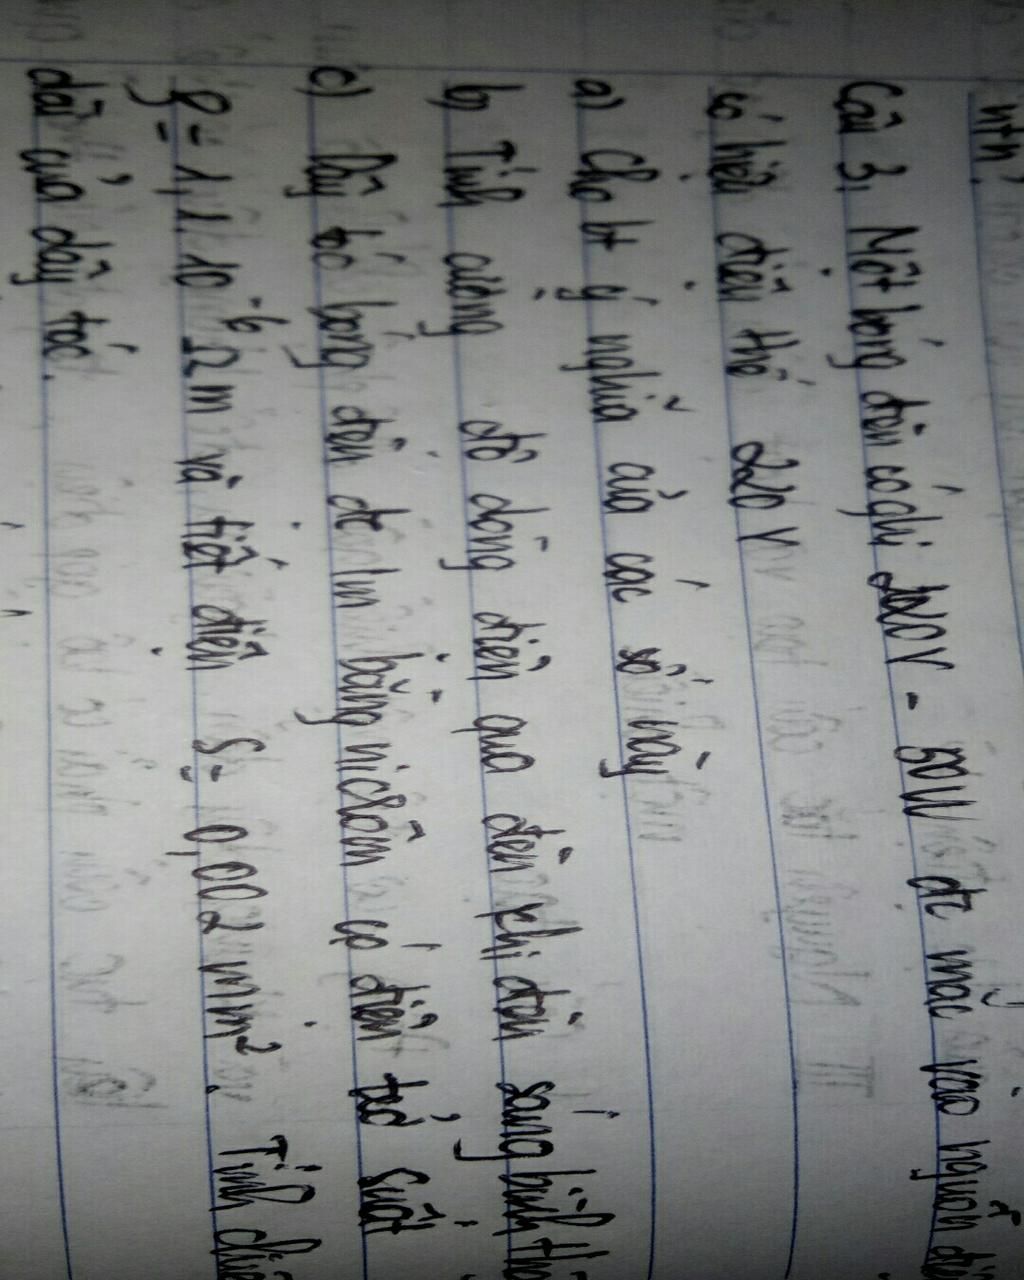 ntn?
Câu 3, Một bóng đèn có ghi 220V - 50W đc mắc vào nguồn
có hiệu điện thế 220V
a) Cho bt ý nghĩa của các số này
b) Tính cường độ dòng điện qua đèn khi đèn sáng bình
c) Dây tóc bóng đèn đc làm bằng nicrôm có điện trở suất
ρ = 1,1.10⁻⁶ Ωm và tiết diện S = 0,002 mm². Tính
dài của dây tóc.